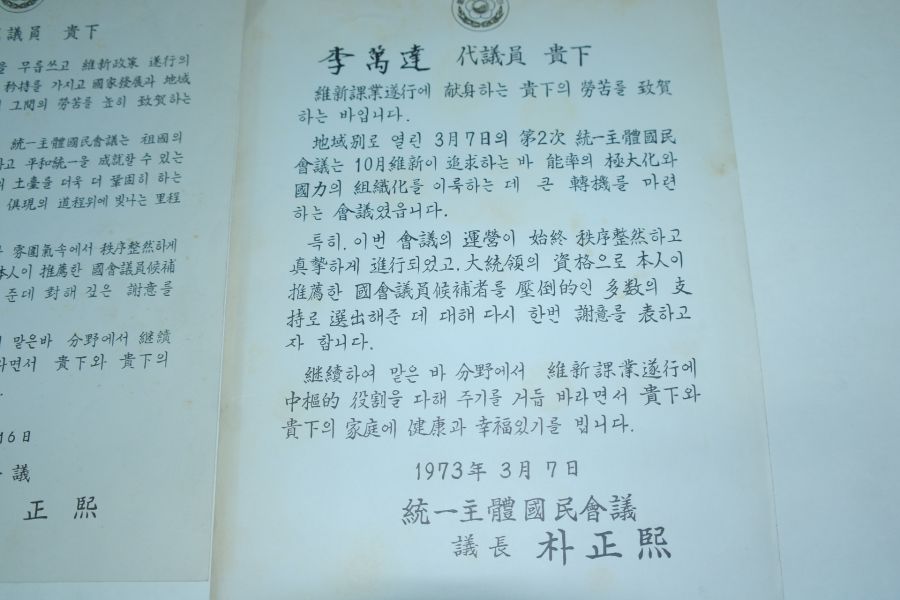 議員 貴下
을 무릅쓰고 維新政策 遂行의
矜持를 가지고 國家發展과 地域
그間의 勞苦를 높히 致賀하는
統一主體國民會議는 祖國의
하고 平和統一을 成就할 수 있는
土臺를 더욱 더 鞏固히 하는
俱現의 道程위에 빛나는 里程
雰圍氣속에서 秩序整然하게
本人이 推薦한 國會議員候補
준데 對해 깊은 謝意를
맡은바 分野에서 継續
라면서 貴下와 貴下의
6日
議
正熙
李萬達 代議員 貴下
維新課業遂行에 献身하는 貴下의 勞苦를 致賀
하는 바입니다.
地域別로 열린 3月7日의 第2次 統一主體國民
會議는 10月維新이 追求하는 바 能率의 極大化와
國力의 組織化를 이룩하는 데 큰 轉機를 마련
하는 會議였읍니다.
특히, 이번 會議의 運營이 始終 秩序整然하고
真摯하게 進行되었고, 大統領의 資格으로 本人이
推薦한 國會議員候補者를 壓倒的인 多數의 支
持로 選出해준 데 대해 다시 한번 謝意를 表하고
자 합니다.
継續하여 맡은 바 分野에서 維新課業遂行에
中樞的 役割을 다해 주기를 거듭 바라면서 貴下와
貴下의 家庭에 健康과 幸福있기를 빕니다.
1973年 3月 7日
統一主體國民會議
議長 朴正熙